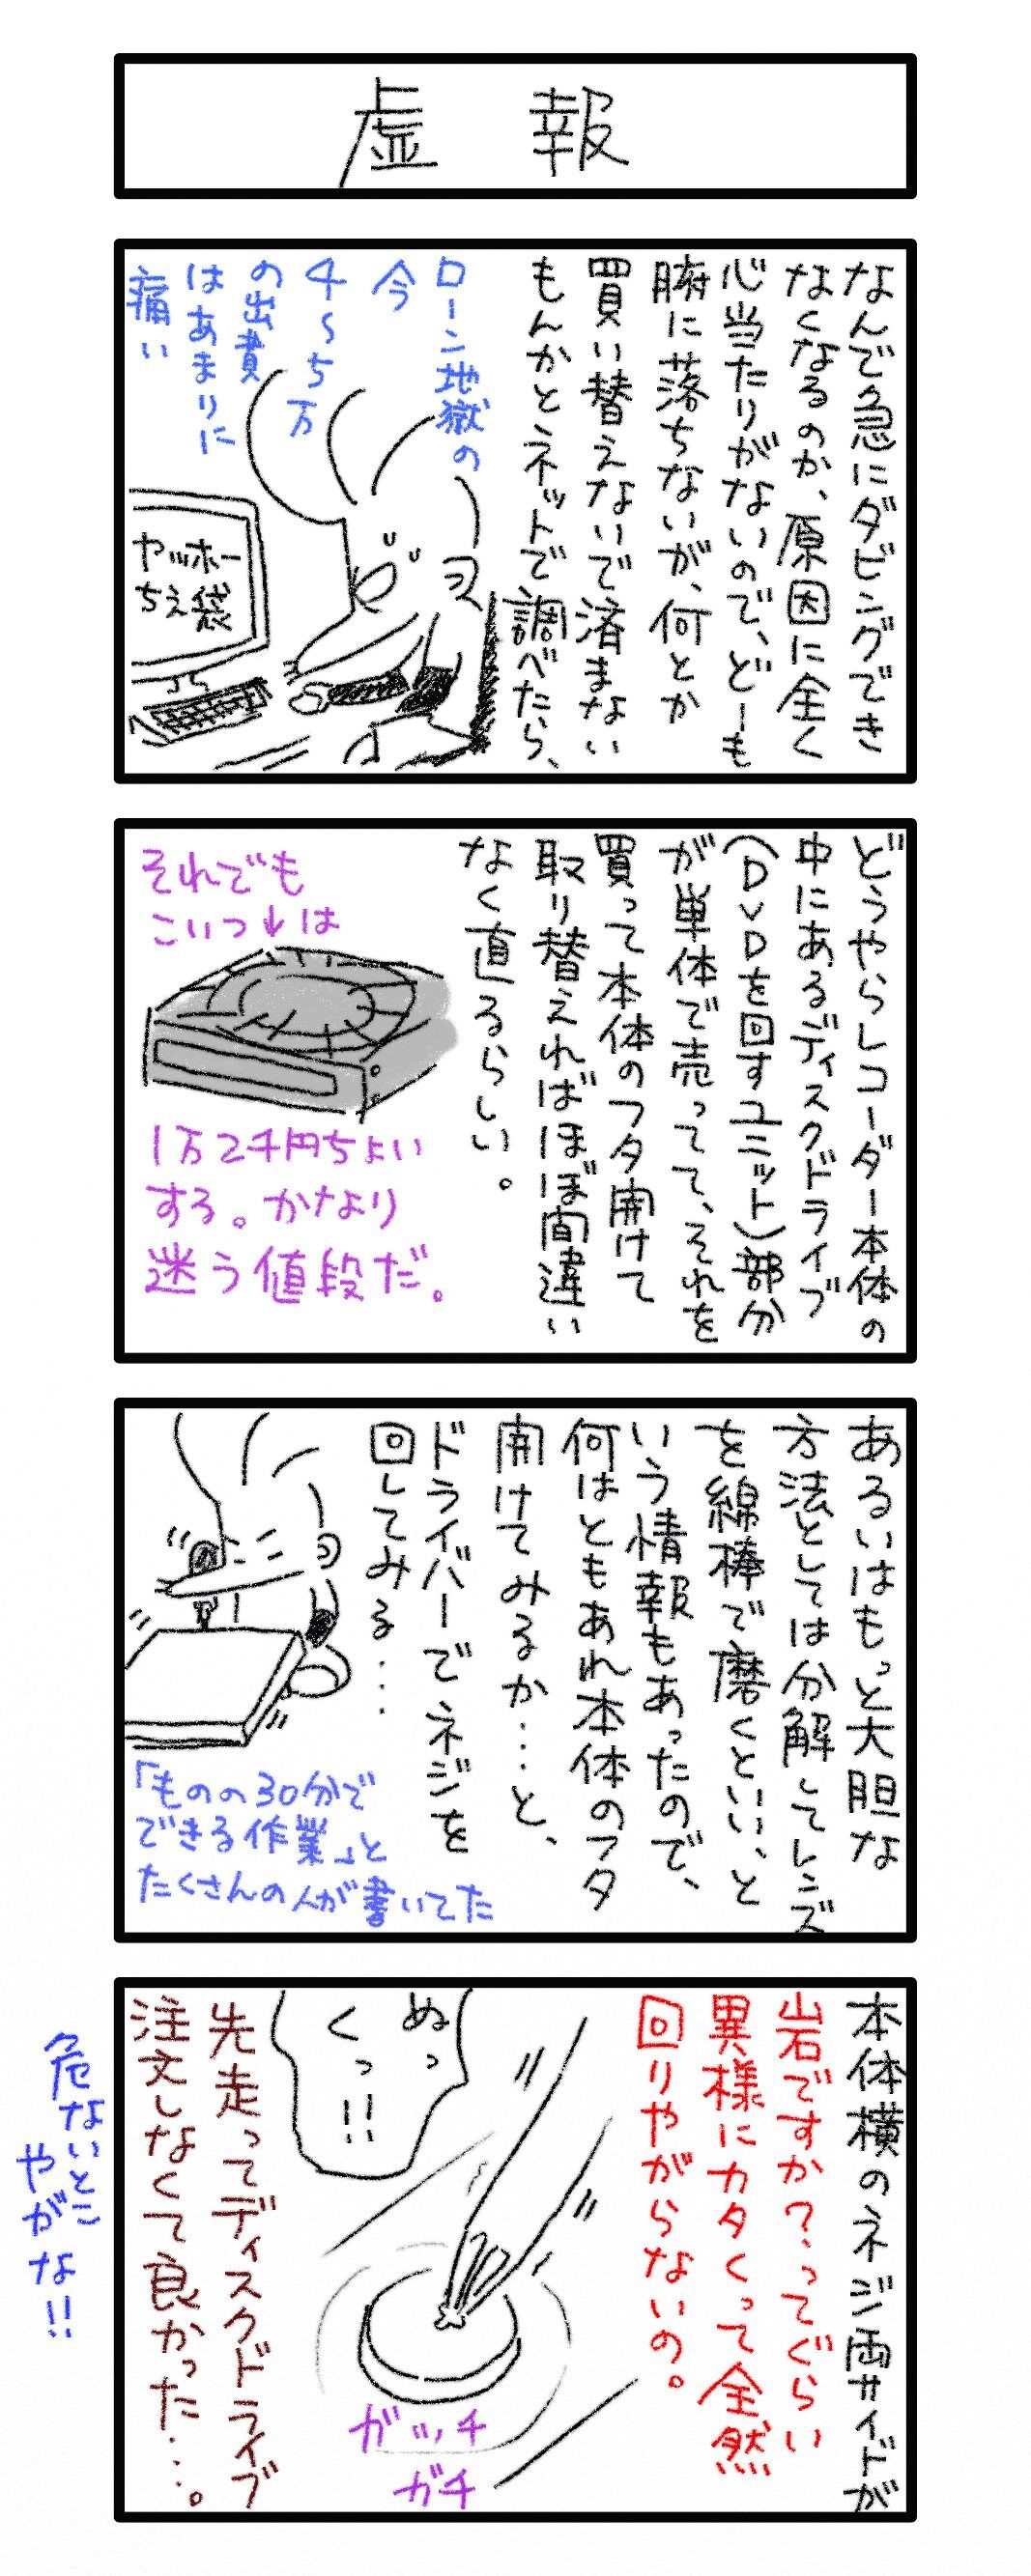 虚報
なんで急にダビングでき
なくなるのか、原因に全く
心当たりがないので、どーも
腑に落ちないが、何とか
買い替えないで済まない
もんかとネットで調べたら、
ローン地獄の
今
4〜5万
の出費
はあまりに
痛い
ヤッホー
ちえ袋
どうやらレコーダー本体の
中にあるディスクドライブ
(DVDを回すユニット)部分
が単体で売ってて、それを
買って本体のフタ開けて
取り替えればほぼ間違い
なく直るらしい。
それでも
こいつ↓は
1万2千円ちょい
する。かなり
迷う値段だ。
あるいはもっと大胆な
方法としては分解してレンズ
を綿棒で磨くといい、と
いう情報もあったので、
何はともあれ本体のフタ
開けてみるか…と、
ドライバーでネジを
回してみる…
「ものの30分で
できる作業」と
たくさんの人が書いてた
本体横のネジ両サイドが
岩ですか?ってぐらい
異様にカタくって全然
回りやがらないの。
ぬっ
くっ!!
ガッチ
ガチ
先走ってディスクドライブ
注文しなくて良かった…。
危ないとこ
やがな!!